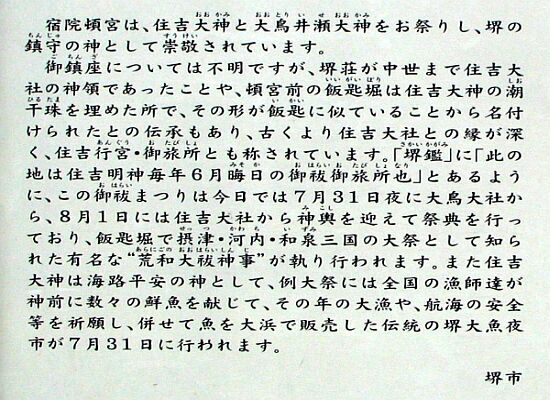 宿院頓宮は、住吉大神と大鳥井瀬大神をお祭りし、堺の
鎮守の神として崇敬されています。
御鎮座については不明ですが、堺荘が中世まで住吉大
社の神領であったことや、頓宮前の飯匙堀は住吉大神の潮
干珠を埋めた所で、その形が飯匙に似ていることから名付
けられたとの伝承もあり、古くより住吉大社との縁が深
く、住吉行宮・御旅所とも称されています。「堺鑑」に「此の
地は住吉明神毎年6月晦日の御祓御旅所也」とあるよう
に、この御祓まつりは今日では7月31日夜に大鳥大社か
ら、8月1日には住吉大社から神輿を迎えて祭典を行っ
ており、飯匙堀で摂津・河内・和泉三国の大祭として知ら
れた有名な“荒和大祓神事”が執り行われます。また住吉
大神は海路平安の神として、例大祭には全国の漁師達が
神前に数々の鮮魚を献じて、その年の大漁や、航海の安全
等を祈願し、併せて魚を大浜で販売した伝統の堺大魚夜
市が7月31日に行われます。
堺市